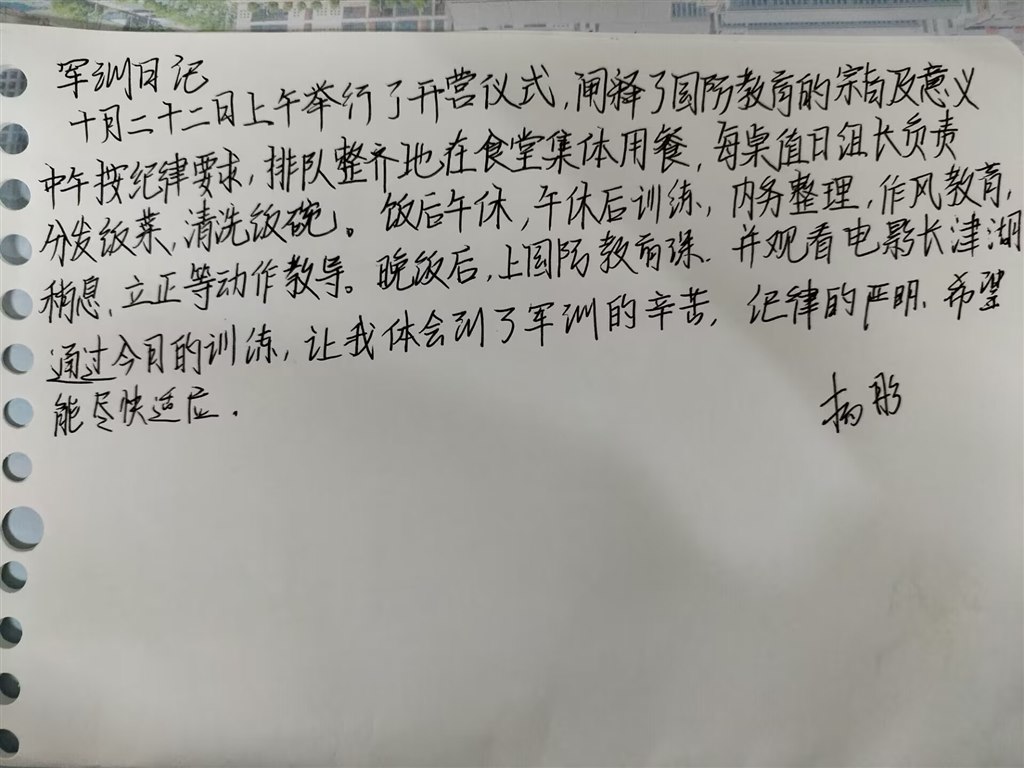 军训日记
十月二十二日上午举行了开营仪式,阐释了国防教育的宗旨及意义
中午按纪律要求,排队整齐地在食堂集体用餐,每桌值日组长负责
分发饭菜,清洗饭碗。饭后午休,午休后训练,内务整理,作风教育,
稍息、立正等动作教导。晚饭后,上国防教育课.并观看电影长津湖
通过今日的训练,让我体会到了军训的辛苦,纪律的严明.希望
能尽快适应.
杨彤